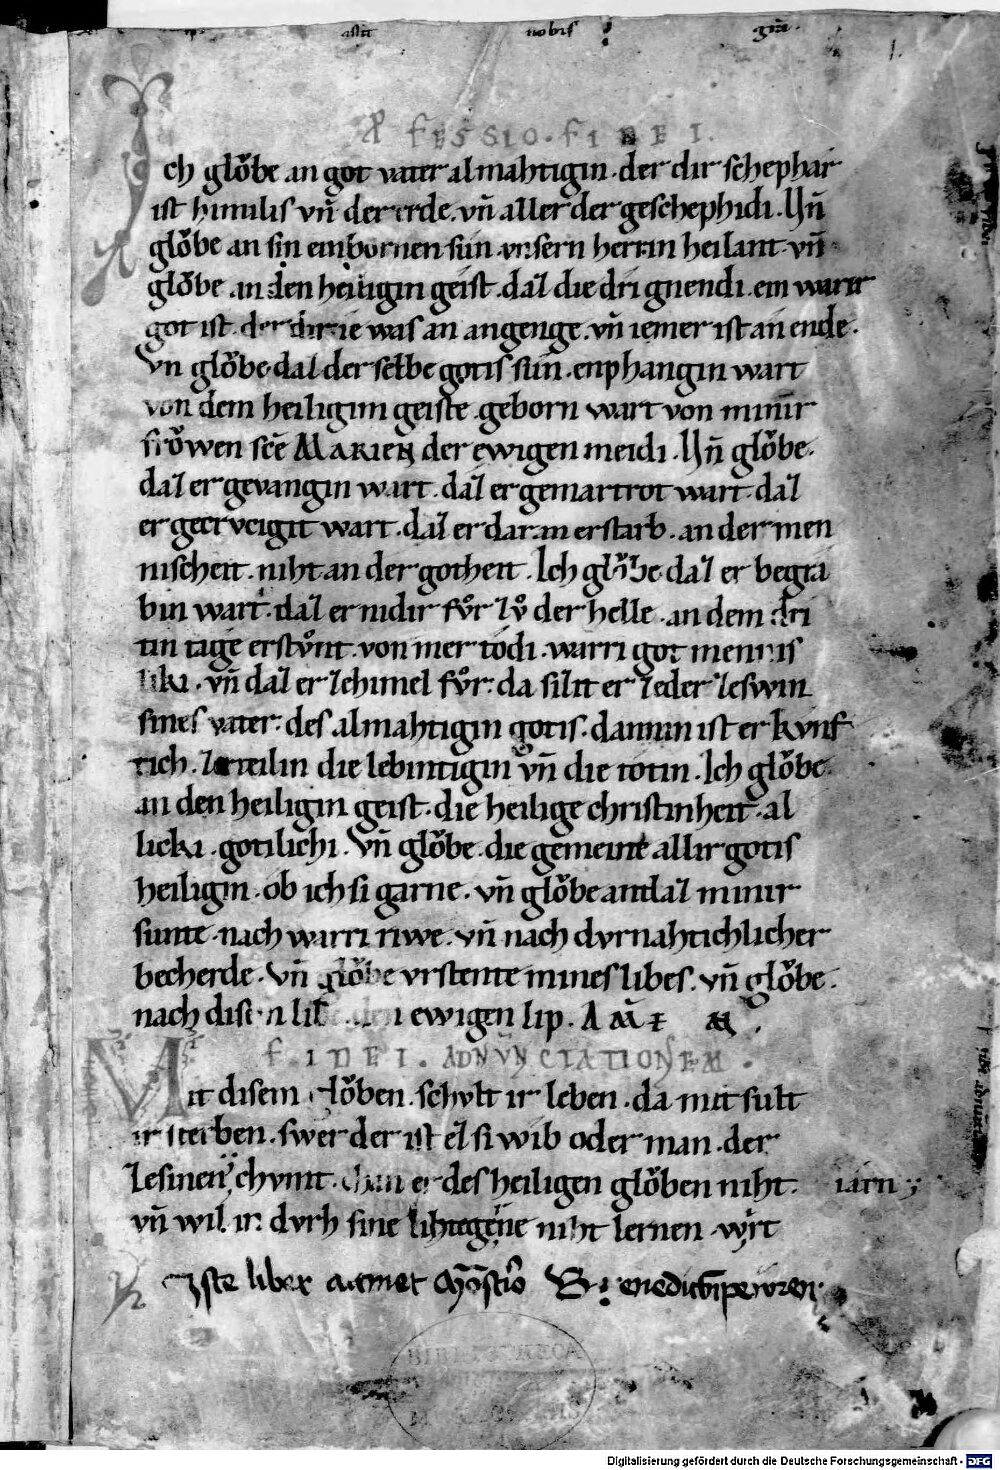 nobis
ꝯFESSIO. FIDEI.
Ich glǒbe an got vater almahtigin. der dir schephar
ist himilis vn̄ der erde. vn̄ aller der geschephidi. Vn̄
glǒbe an sin einbornen sun vnsern herrin heilant. vn̄
glǒbe an den heiligin geist. daz die dri gnendi. ein warer
got ist. der dir ie was an angenge. vn̄ iemer ist an ende.
Vn glǒbe daz der selbe gotis sun. enphangin wart
von dem heiligim geiste. geborn wart von minir
frǒwen scē MARIEN der ewigen meidi. Vn̄ glǒbe.
daz er gevangin wart. daz er gemartrot wart. daz
er gecrvcigit wart. daz er dar an erstarb. an der men
nischeit. niht an der gotheit. Ich glǒbe daz er begra
bin wart. daz er nidir fv̊r zv̊ der helle. an dem dri
tin tage erstv̊nt. von mer todi. warri got mennis
liki. vn̄ daz er zehimel fv̊r. da sizit er zeder zeswin
sines vater. des almahtigin gotis. dannin ist er kvnf
tich. zerteilin die lebintigin vn̄ die totin. Ich glǒbe
an den heiligin geist. die heilige christinheit. al
licki. gotilichi. Vn̄ glǒbe die gemeine allir gotis
heiligin. ob ich si garne. vn̄ glǒbe antlaz minir
sunte. nach warri riwe. vn̄ nach dvrnahtichlicher
becherde. Vn̄ glǒbe vrstente mines libes. vn̄ glǒbe.
nach disen lib den ewigen lip. AMEN.
FIDEI. ADNVNCIATIONEM.
Mit disem glǒben. schvlt ir leben. da mit sult
ir sterben. swer der ist ez si wib oder man. der
zesinen chvmt. chan er des heiligen glǒben niht. iarn
vn̄ wil in dvrh sine niht lernen. wirt
Iste liber attinet Mōstio Benedictnpewren.
BIBLIOTHECA
Digitalisierung gefördert durch die Deutsche Forschungsgemeinschaft - DFG